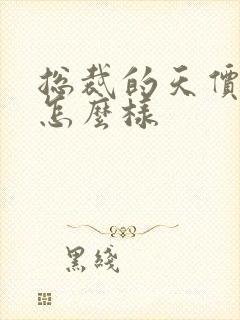 总裁的天價
怎麼樣
黑綫